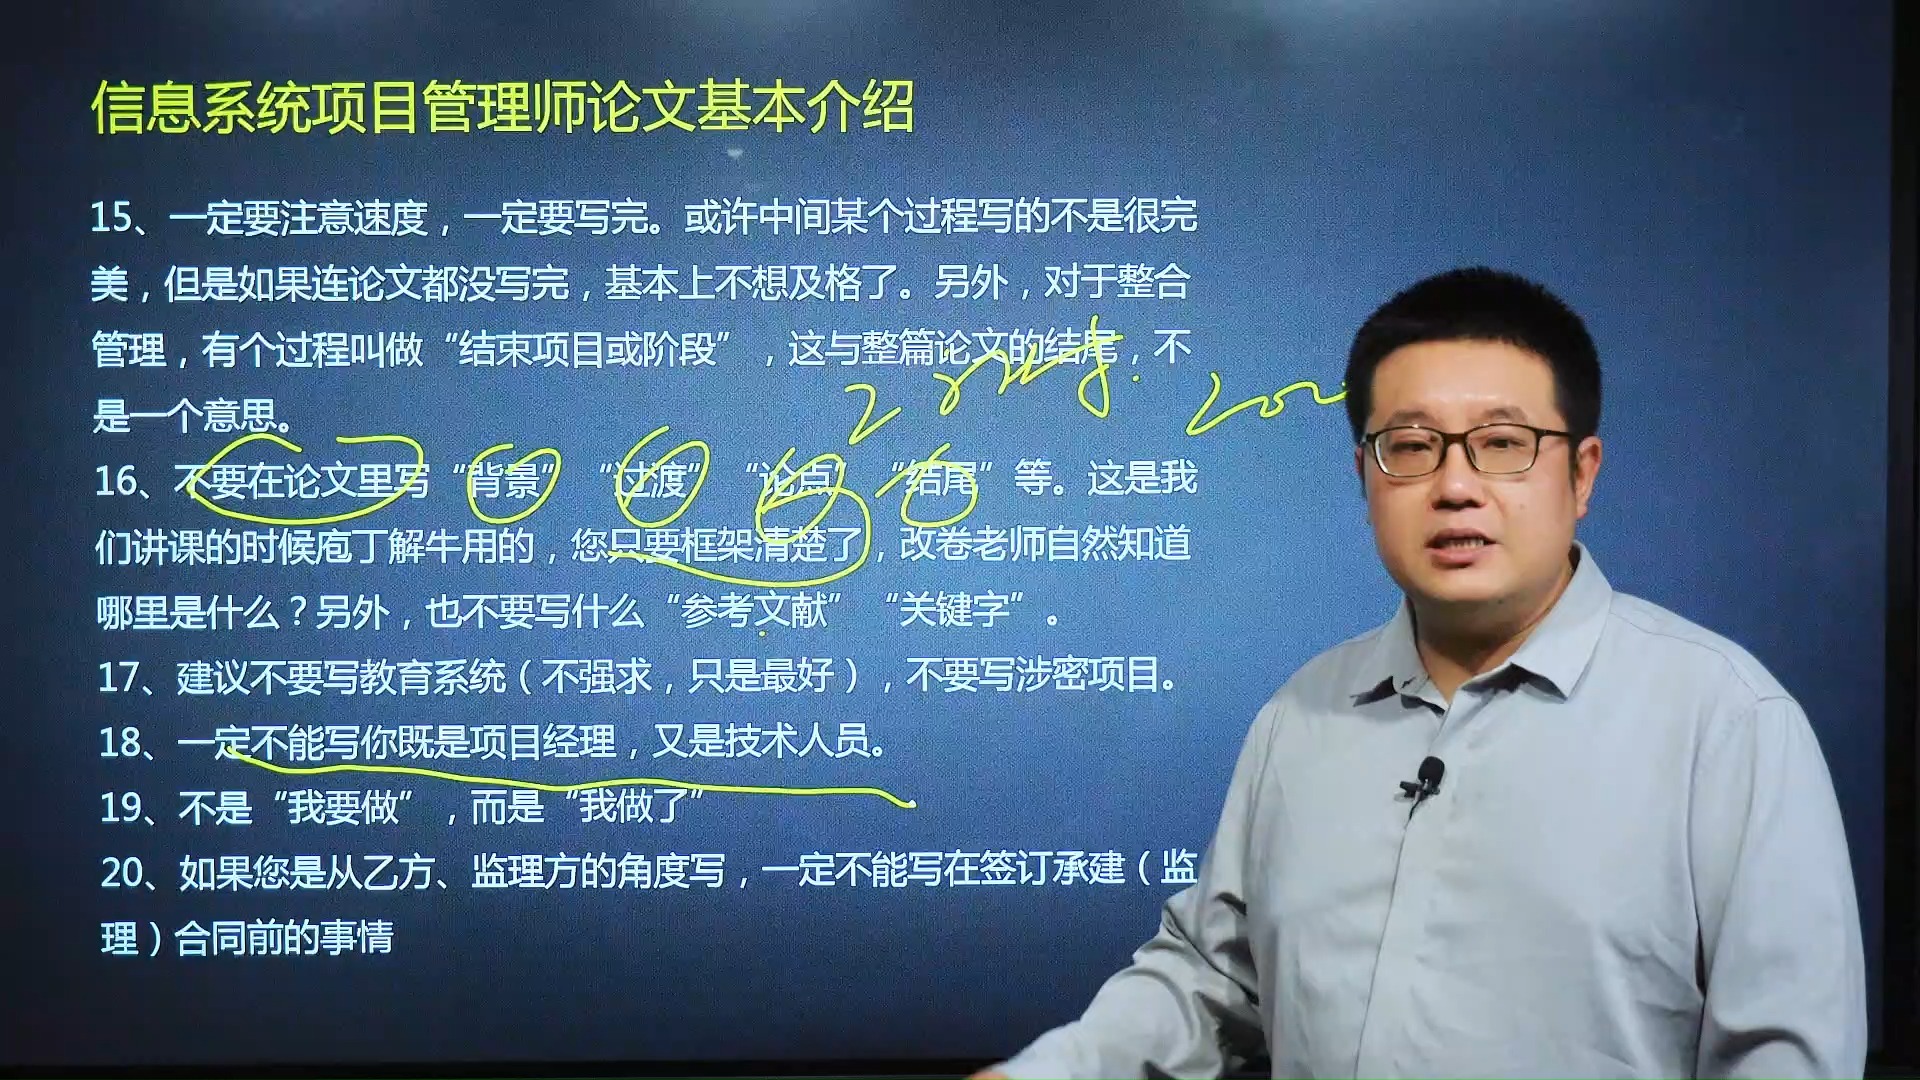 信息系统项目管理师论文基本介绍
15、一定要注意速度，一定要写完。或许中间某个过程写的不是很完
美，但是如果连论文都没写完，基本上不想及格了。另外，对于整合
管理，有个过程叫做“结束项目或阶段”，这与整篇论文的结尾，不
是一个意思。
16、不要在论文里写“背景”“过渡”“论点”“结尾”等。这是我
们讲课的时候庖丁解牛用的，您只要框架清楚了，改卷老师自然知道
哪里是什么？另外，也不要写什么“参考文献”“关键字”。
17、建议不要写教育系统（不强求，只是最好），不要写涉密项目。
18、一定不能写你既是项目经理，又是技术人员。
19、不是“我要做”，而是“我做了”
20、如果您是从乙方、监理方的角度写，一定不能写在签订承建（监
理）合同前的事情